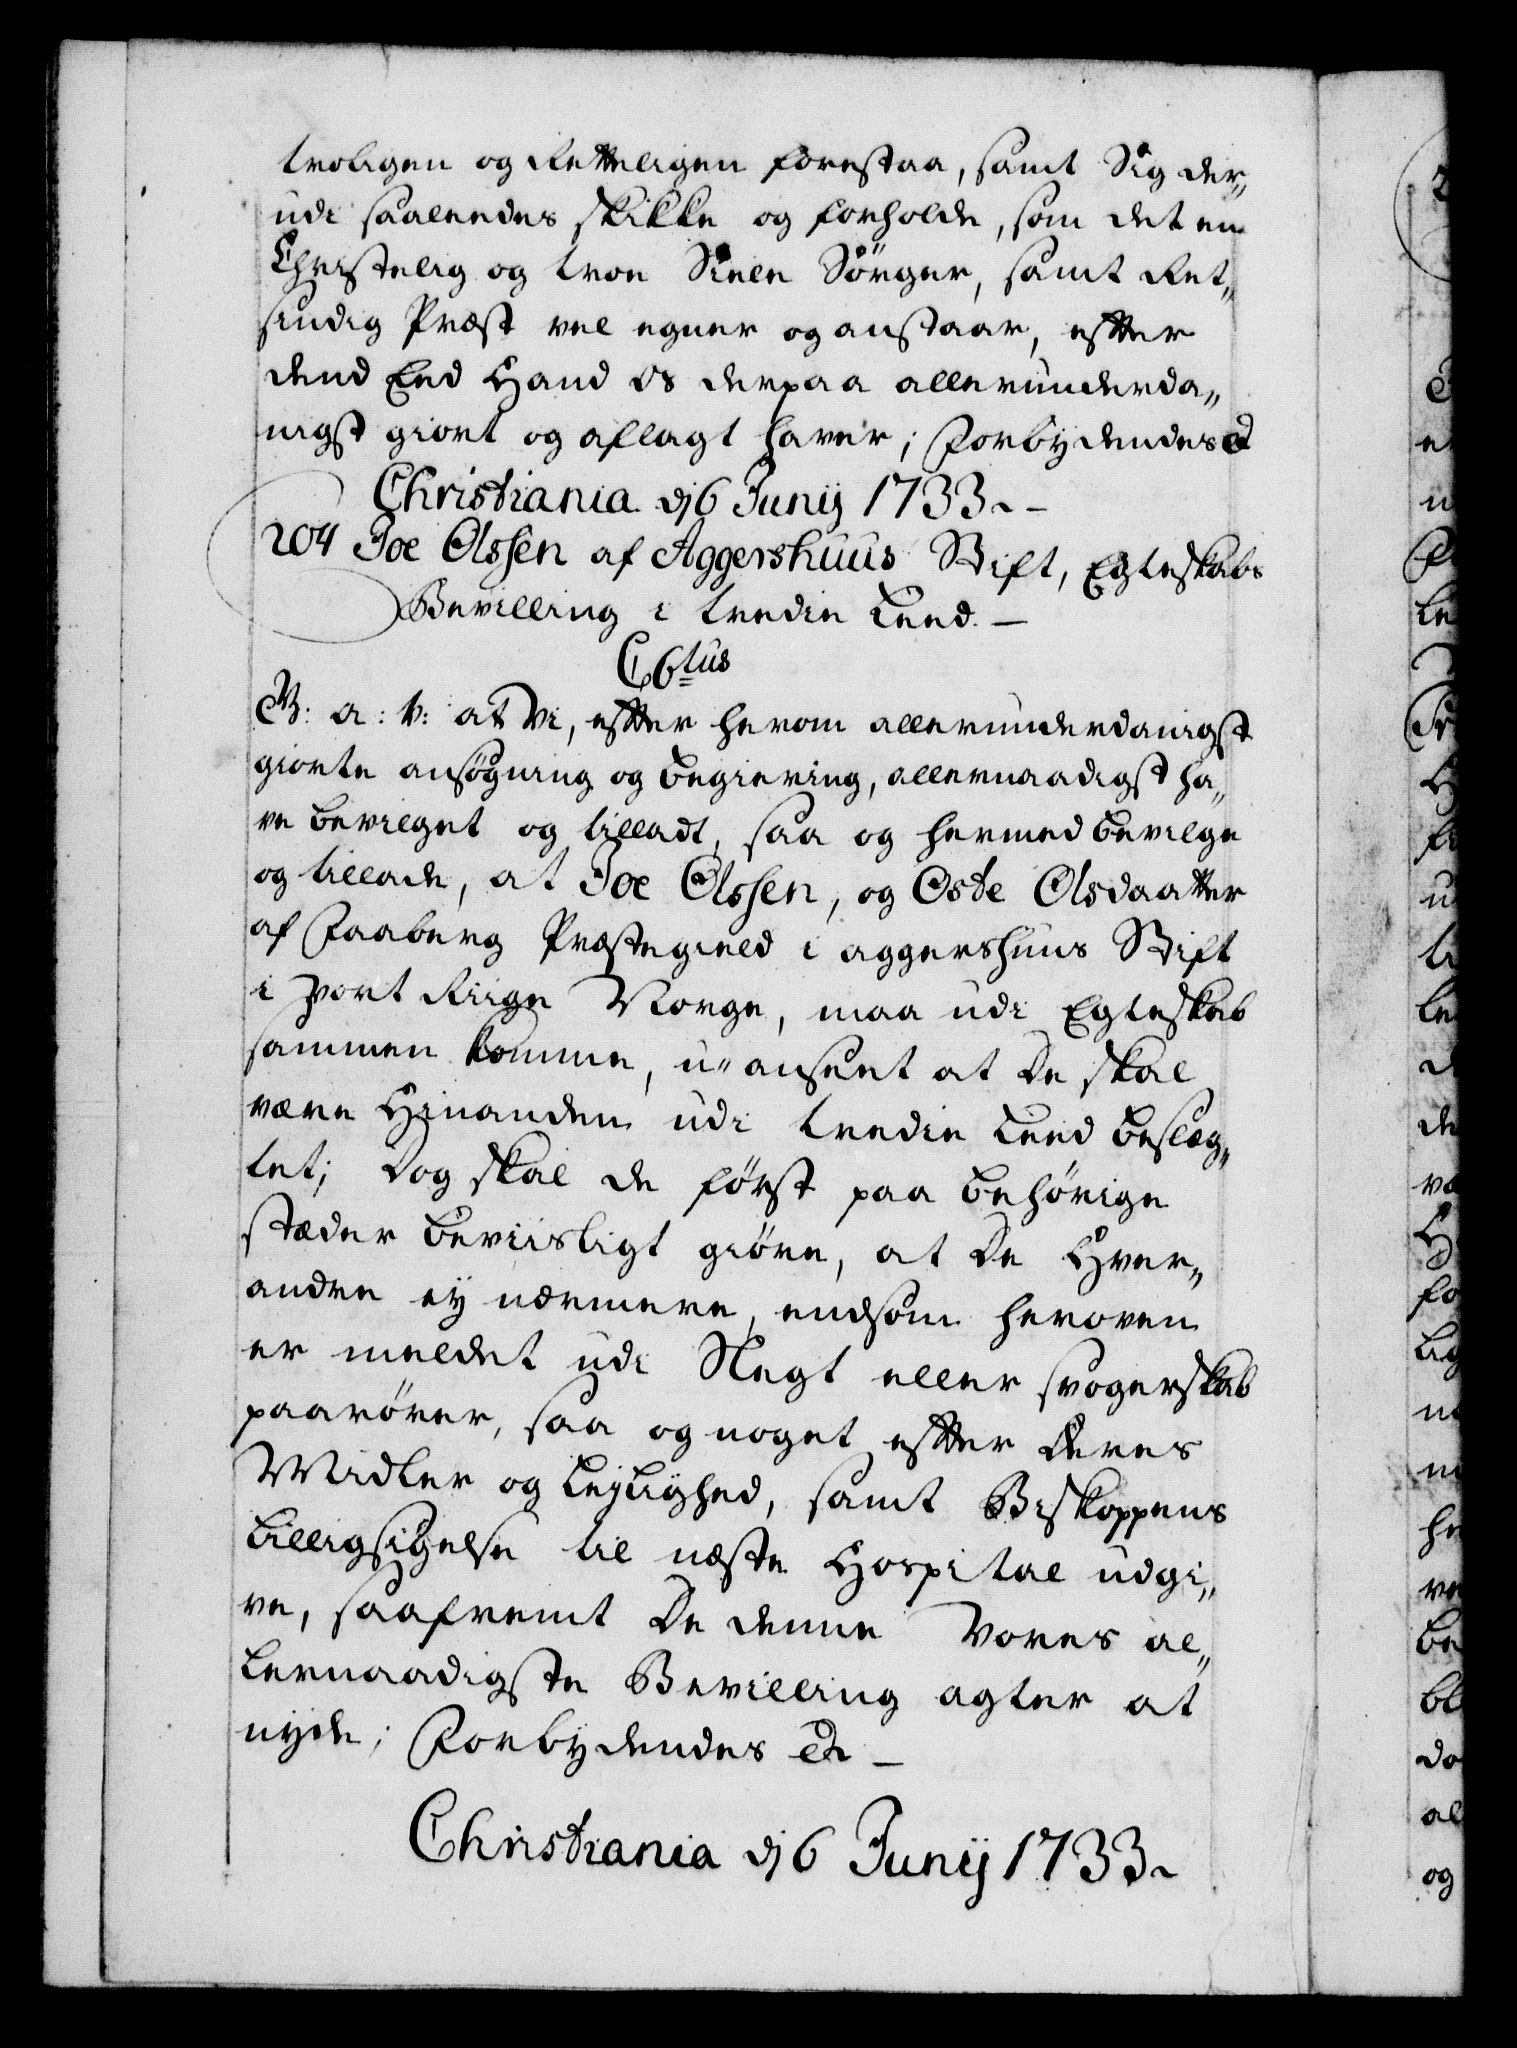 troligen og Retteligen forestaa, samt Sig der„
udi saaleedes skikke og forholde, som det en
Christelig og troe Siele Sörger, samt Ret„
sindig Præst vel egner og anstaar, efter
dend Eed Hand Os derpaa allerunderda„
nigst giort og aflagt haver; Forbydendes &
Christiania dj 6 Junij 1733.
204 Joe Olssen af Aggershuus Stift, Egteskabs
Bevilling i tredie Leed.
C 6tus
G: a: v: at Vi, efter herom allerunderdanigst
giorte ansøgning og begiering, allernaadigst ha„
ve bevilget og tilladt, saa og hermed bevilge
og tillade, at Joe Olssen, og Oste Olsdaatter
af Faaberg Præstegield i aggershuus Stift
i Vort Riige Norge, maa udi Egteskab
sammen komme, u„anseet at De skal
være Hinanden udi tredie Leed beslæg„
tet; Dog skal de først paa behørige
stæder beviisligt giøre, at De Hver„
andre ey nærmere, endsom heroven
er meldet udi Slegt eller svogerskab
paarörer, saa og noget efter Deres
Midler og Lejlighed, samt Biskoppens
tilligsigelse til næste Hospital udgi„
ve, saafremt De denne Vores al„
lernaadigste Bevilling agter at
nyde; Forbydendes &
Christiania dj 6 Junij 1733.